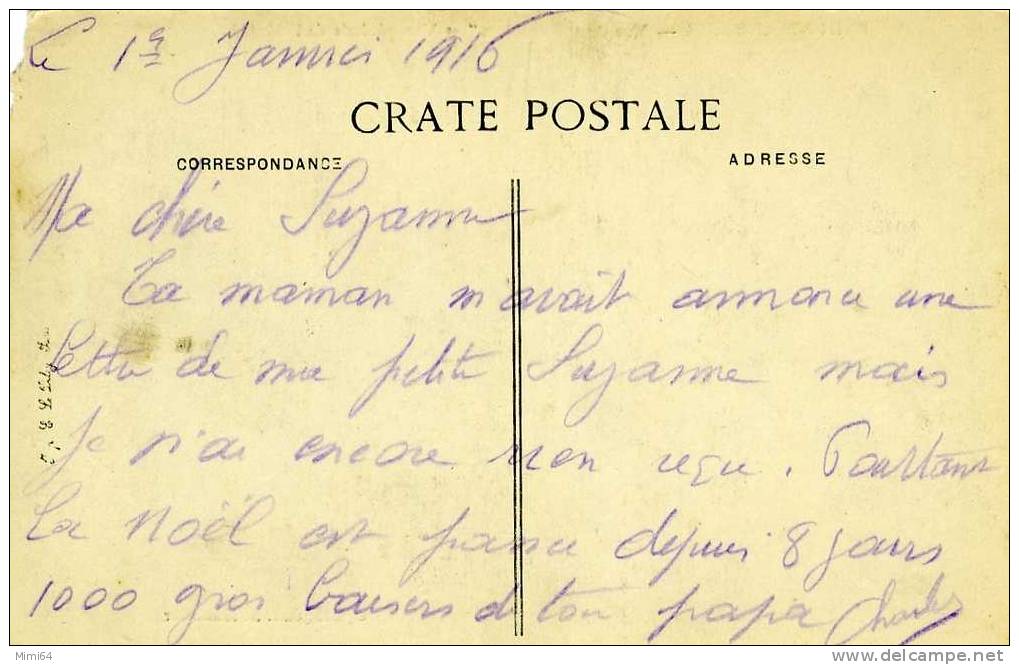 Le 1er Janvier 1916
CRATE POSTALE
CORRESPONDANCE
ADRESSE
Ma chère Suzanne
Ta maman m'avait annoncé une
lettre de ma petite Suzanne mais
Je n'ai encore rien reçu. Pourtant
La Noël est passée depuis 8 jours
1000 gros baisers de ton papa Charles
Mimi64
http://www.delcampe.net